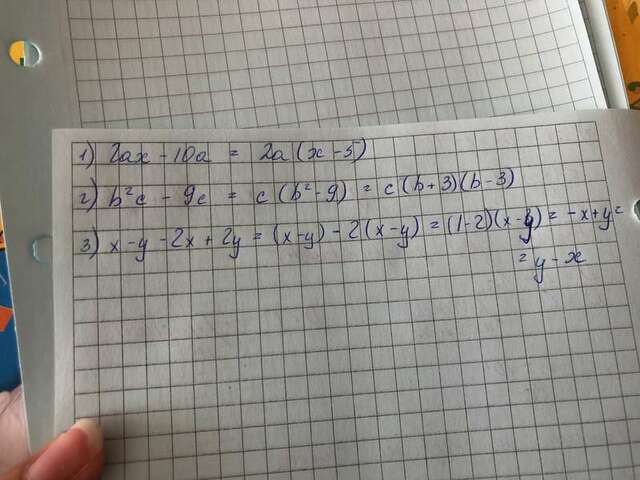 1) 2ax - 10a = 2a(x - 5)
2) b²c - 9c = c(b² - 9) = c(b+3)(b-3)
3) x - y - 2x + 2y = (x-y) - 2(x-y) = (1-2)(x-y) = -x+y =
= y - x